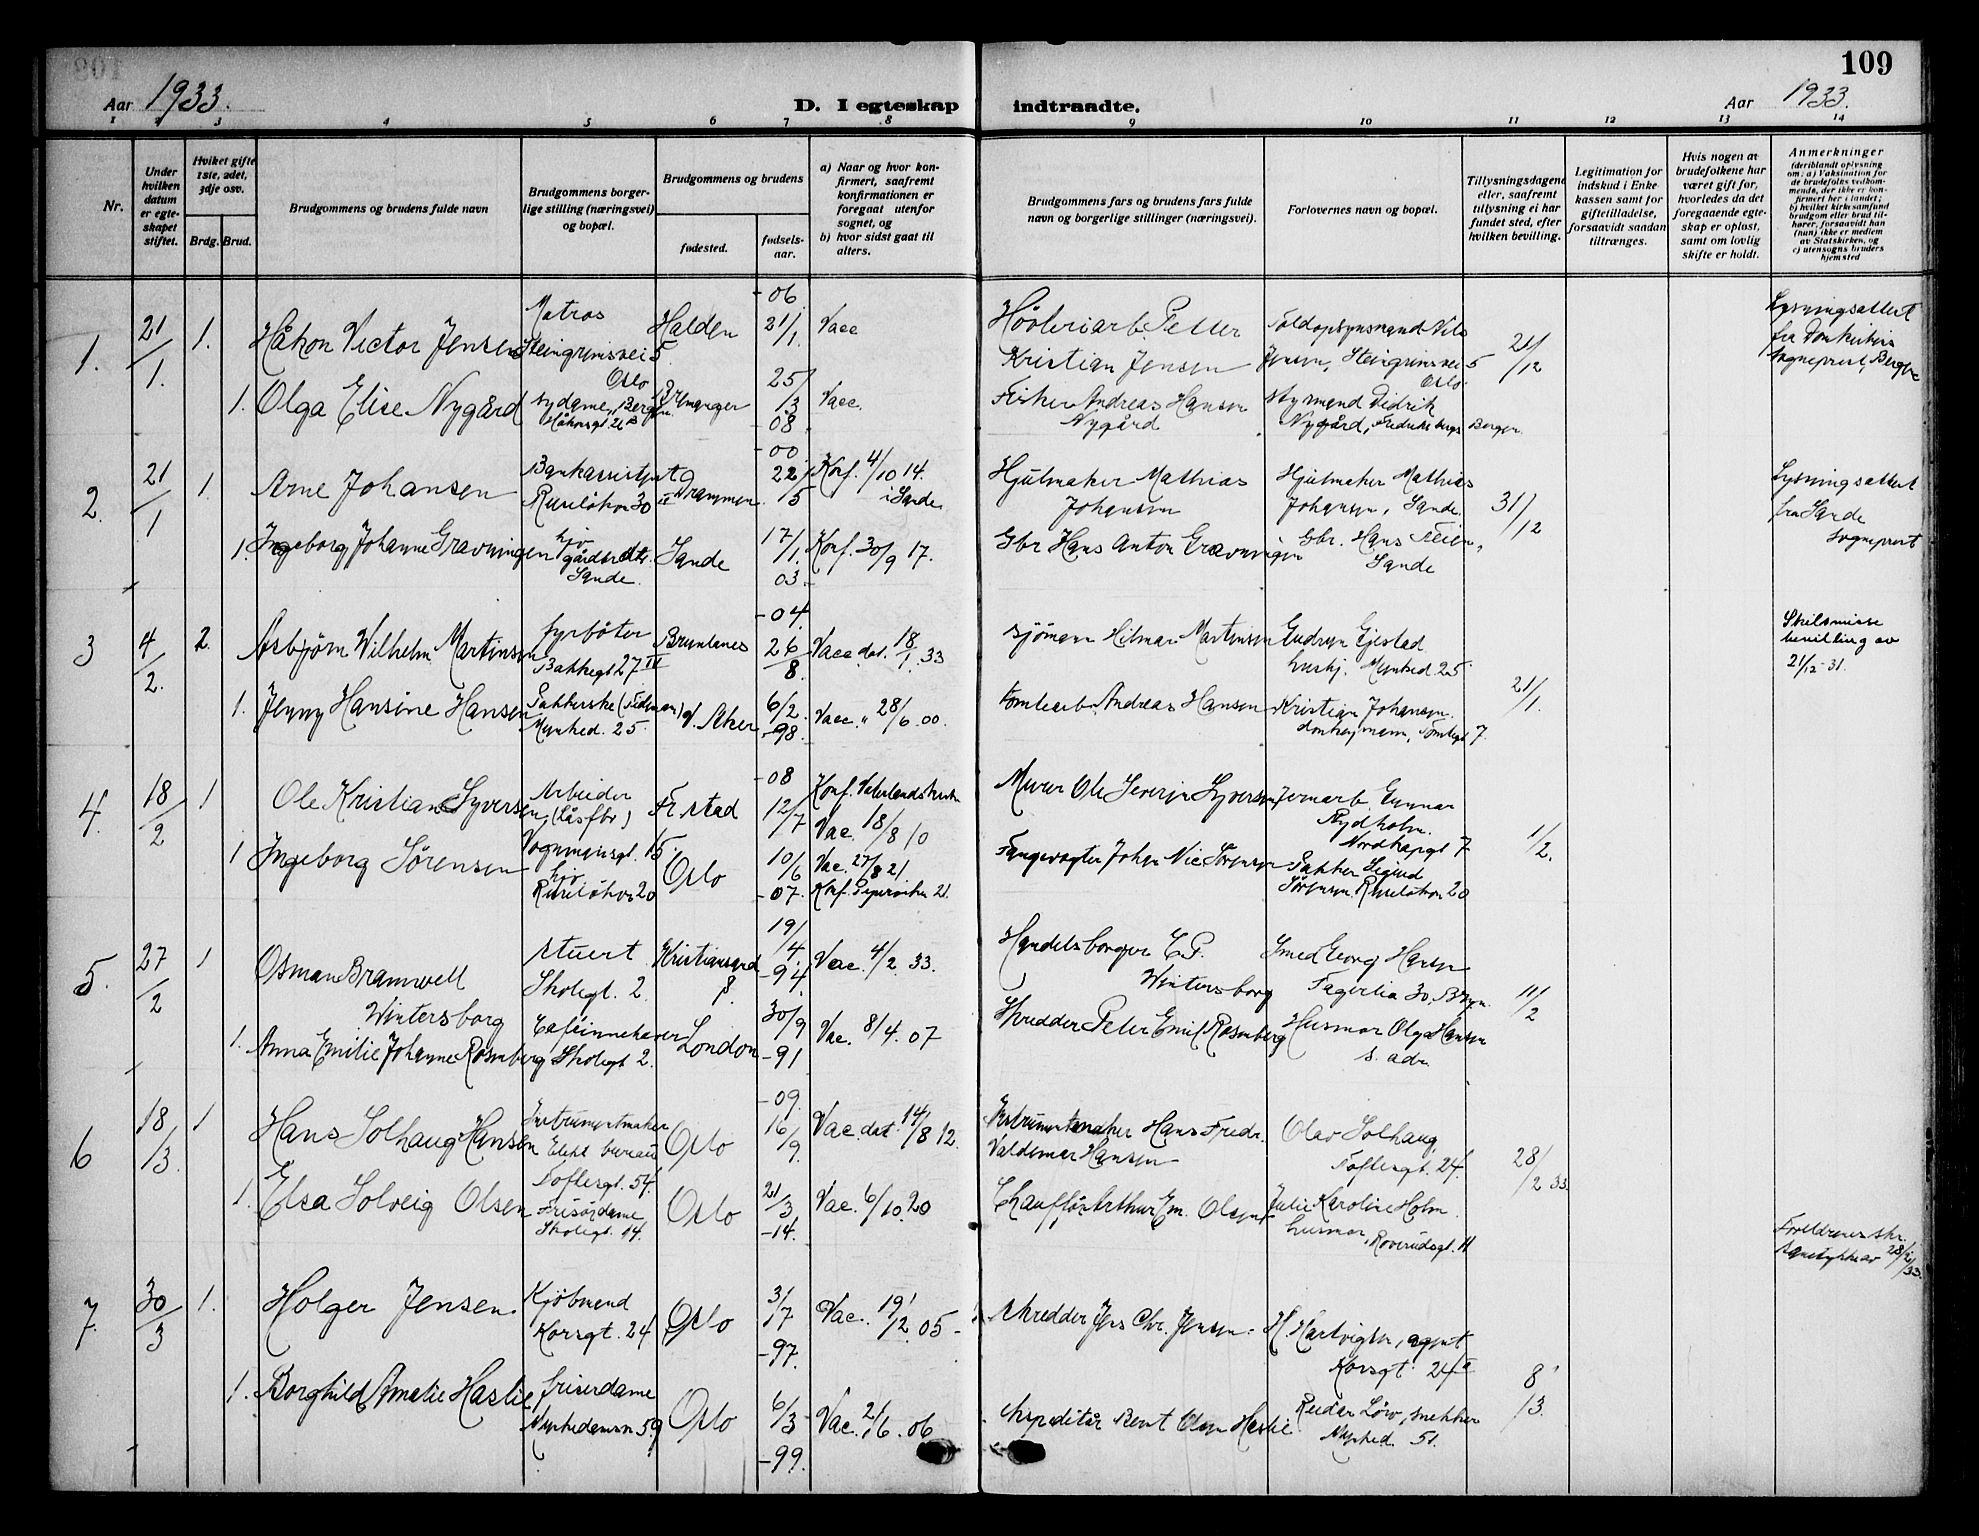 109
Aar 1933.
D. I egteskap indtraadte.
Aar 1933.
1 2 3 4 5 6 7 8 9 10 11 12 13 14
Nr.
Under hvilken datum er egteskapet stiftet.
Hviket gifte 1ste, 2det, 3dje osv.
Brdg. Brud.
Brudgommens og brudens fulde navn
Brudgommens borgerlige stilling (næringsvei) og bopæl.
Brudgommens og brudens
fødested.
fødselsaar.
a) Naar og hvor konfirmert, saafremt konfirmationen er foregaat utenfor sognet, og
b) hvor sidst gaat til alters.
Brudgommens fars og brudens fars fulde navn og borgerlige stillinger (næringsvei).
Forlovernes navn og bopæl.
Tillysningsdagene eller, saafremt tillysning ei har fundet sted, efter hvilken bevilling.
Legitimation for indskud i Enkekassen samt for giftetilladelse, forsaavidt saadan tiltrænges.
Hvis nogen av brudefolkene har været gift før, hvorledes da det foregaaende egteskap er opløst, samt om lovlig skifte er holdt.
Anmerkninger
(deriblandt oplysning om: a) Vaksination for de brudefolks vedkommende, der ikke er konfirmert her i landet; b) hvilket kirkesamfund brudgom eller brud tilhører, forsaavidt han (hun) ikke er medlem av Statskirken, og c) utensogns bruders hjemsted
1. 21/1. 1. Håkon Victor Jensen
Matros
Steingrimsvei 5
Oslo
Halden
-06
21/1.
Vacc
Petter
Kristian Jensen
Jensen, Steingrimsvei 5
Oslo.
21/12
Lysningsattest
fra Domkirkens
Sogneprest, Bergen
1. Olga Elise Nygård
sydame, Bergen.
Håkonsgt 21
Bremanger
25/3
08
Vacc.
Fisker Andreas Hansen
Nygård
Styrmand Didrik
Nygård, Bergen.
2. 21/1 1. Arne Johansen
Ruseløkvn 30
Drammen
-00
22/5
Konf. 4/10 14.
i Sande
Hjulmaker Mathias
Johansen
Hjulmaker Mathias
Johansen, Sande.
31/12
Lysningsattest
fra Sande
Sogneprest
1. Ingeborg Johanne Gravningen
Sande.
Sande
17/1.
03.
Konf. 30/9 17.
Gbr Hans Anton Gravningen
Gbr. Hans
Sande
3 4/2. 2. Asbjørn Wilhelm Martinsen
fyrbøter
Bakkegt 27 IV
Brunlanes
-04.
26/8.
Vacc. dat. 18/1. 33
sjömann Hilmar Martinsen
Gudrun Gjestad
husbj. Munked. 25
Skilsmisse
bevilling av
21/12-31.
1. Jenny Hansine Hansen
Pakkerske
Munked. 25.
V. Aker
6/2.
-98.
Vacc. " 28/6. 00.
Tomtearb. Andreas Hansen
Kristian Johansen.
donkeymann, Tomtegt 7.
21/1.
4. 18/2 1 Ole Kristian Syversen
Arbeider
(låsfbr)
Vognmannsgt. 15.
Fr. stad
-08
12/7
Konf. Vaterlandskirken
Vac. 18/8 10
Murer Ole Severin Syversen
Jernarb. Gunnar
Rydholm.
Nordkapgt 7
1/2.
1 Ingeborg Sørensen
hjv
Ruseløkvn 20
Oslo
10/6
-07.
Vac. 27/8 21
Konf. Pipervikn 21.
Fangevogter Johan Nic Sørensen
Pakker Sigurd
Sørensen. Ruseløkvn 20
5. 27/2 1 Osman Bramwell
Wintersborg
stuert
Skolegt. 2.
Kristiansand
S.
19/4.
-94.
Vac. 4/2 33.
Handelsborger C. P.
Wintersborg
Smed Georg Hansen
Fagerlia 30, Bryn.
11/2
1. Anna Emilie Johanne Rosenberg
Caféinnehaver
Skolegt 2.
London
30/9
-91
Vac. 8/4. 07
Skredder Peter Emil Rosenberg
Husmor Olga Hansen
s. adr.
6 18/3. 1 Hans Solhaug Hansen
Instrumentmaker
Elekt bureau
Toftesgt. 54.
Oslo
-09.
16/9.
Vac. dat. 14/8 12.
Instrumentmaker Hans Fredr.
Valdemar Hansen
Olav Solhaug,
Toftesgt. 24.
28/2 33.
1. Elsa Solveig Olsen
Frisørdame
Skolegt. 14.
Oslo
21/3
-14.
Vac. 6/10. 20
Chauffør Arthur Em. Olsen
Julie Karoline Holm.
husmor, Roverudsgt. 11
Foreldrenes skr.
samtykke av 28/2 33.
7. 30/3 1. Holger Jensen.
Kjøbmend
Korsgt. 24
Oslo
31/7
-97.
Vac. 19/12. 05-
skredder Jens Chr. Jensen.
H. Hartvigsen, agent
Korsgt. 24
8/3.
1. Borghild Amalie Haslie
friserdame
Munkedamsvn 59
Oslo
6/3
-99.
Vac. 21/6. 06
ekspeditør Bernt Olsen Haslie
Reidar Löw, snekker
Munked. 51.